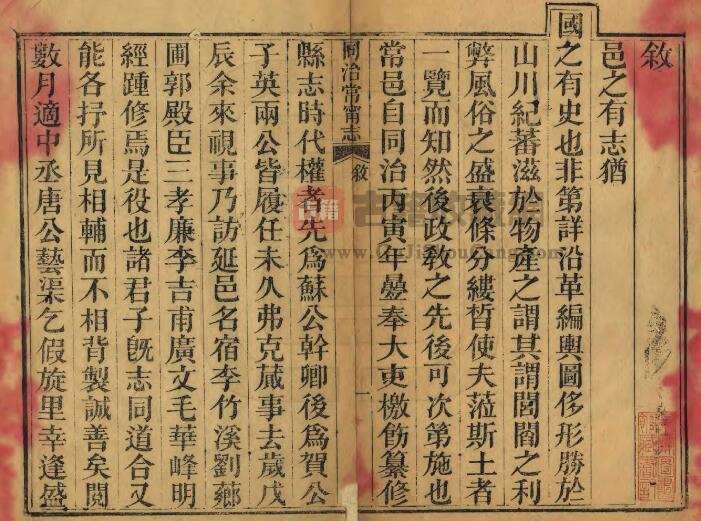 敘
邑之有志猶
國之有史也非第詳沿革編輿圖侈形勝於
山川紀蕃滋於物產之謂其謂閭閻之利
弊風俗之盛衰條分縷晳使夫蒞斯土者
一覽而知然後政敎之先後可次第施也
常邑自同治丙寅年曇奉大吏檄飭纂修
同治常甯志 敘 一
縣志時代權者先爲蘇公幹卿後爲賀公
子英兩公皆履任未久弗克蕆事去歲戊
辰余來視事乃訪延邑名宿李竹溪劉薌
圃郭殿臣三孝廉李吉甫廣文毛華峰明
經踵修焉是役也諸君子旣志同道合又
能各抒所見相輔而不相背製誠善矣閱
數月適中丞唐公藝渠乞假旋里幸逢盛
古籍